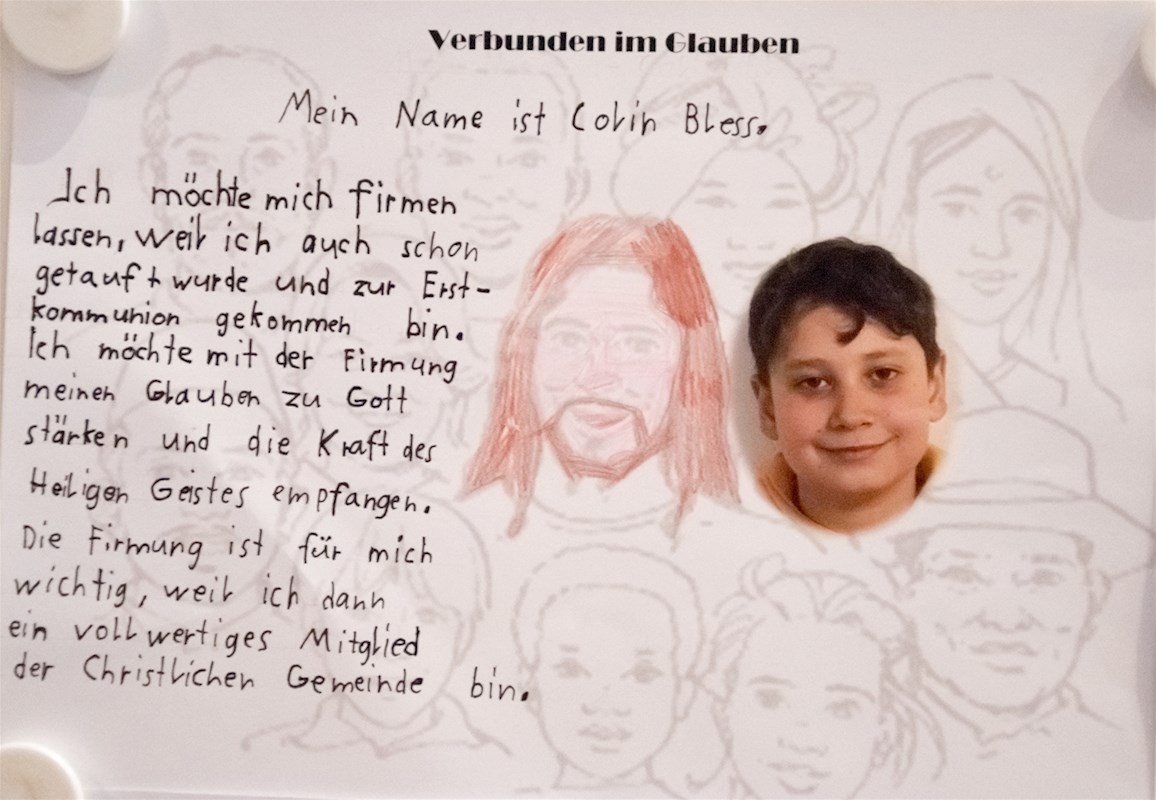 Verbunden im Glauben
Mein Name ist Colin Bless.
Ich möchte mich firmen
lassen, weil ich auch schon
getauft wurde und zur Erst-
kommunion gekommen bin.
Ich möchte mit der Firmung
meinen Glauben zu Gott
stärken und die Kraft des
Heiligen Geistes empfangen.
Die Firmung ist für mich
wichtig, weil ich dann
ein vollwertiges Mitglied
der Christlichen Gemeinde bin.